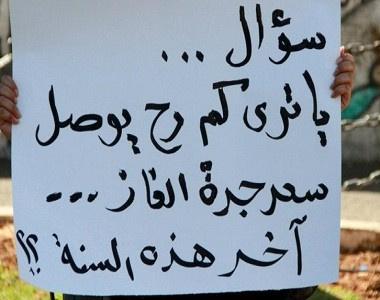 سؤال ...
يا ترى كم رح يوصل
سعر جرة الغاز ...
آخر هذه السنة ؟؟